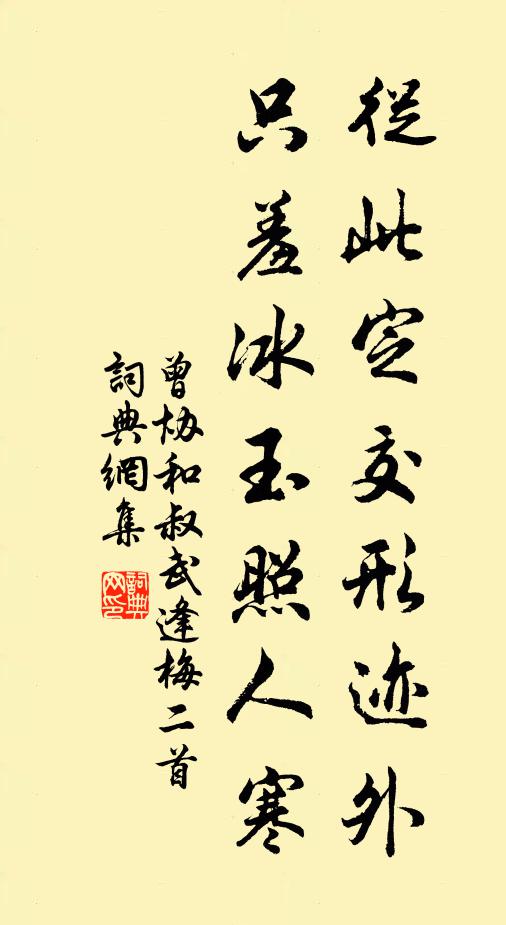 從此定交形迹外
只羞冰玉照人寒
曾协和叔武逢梅二首
詞典網集
詞典
网印